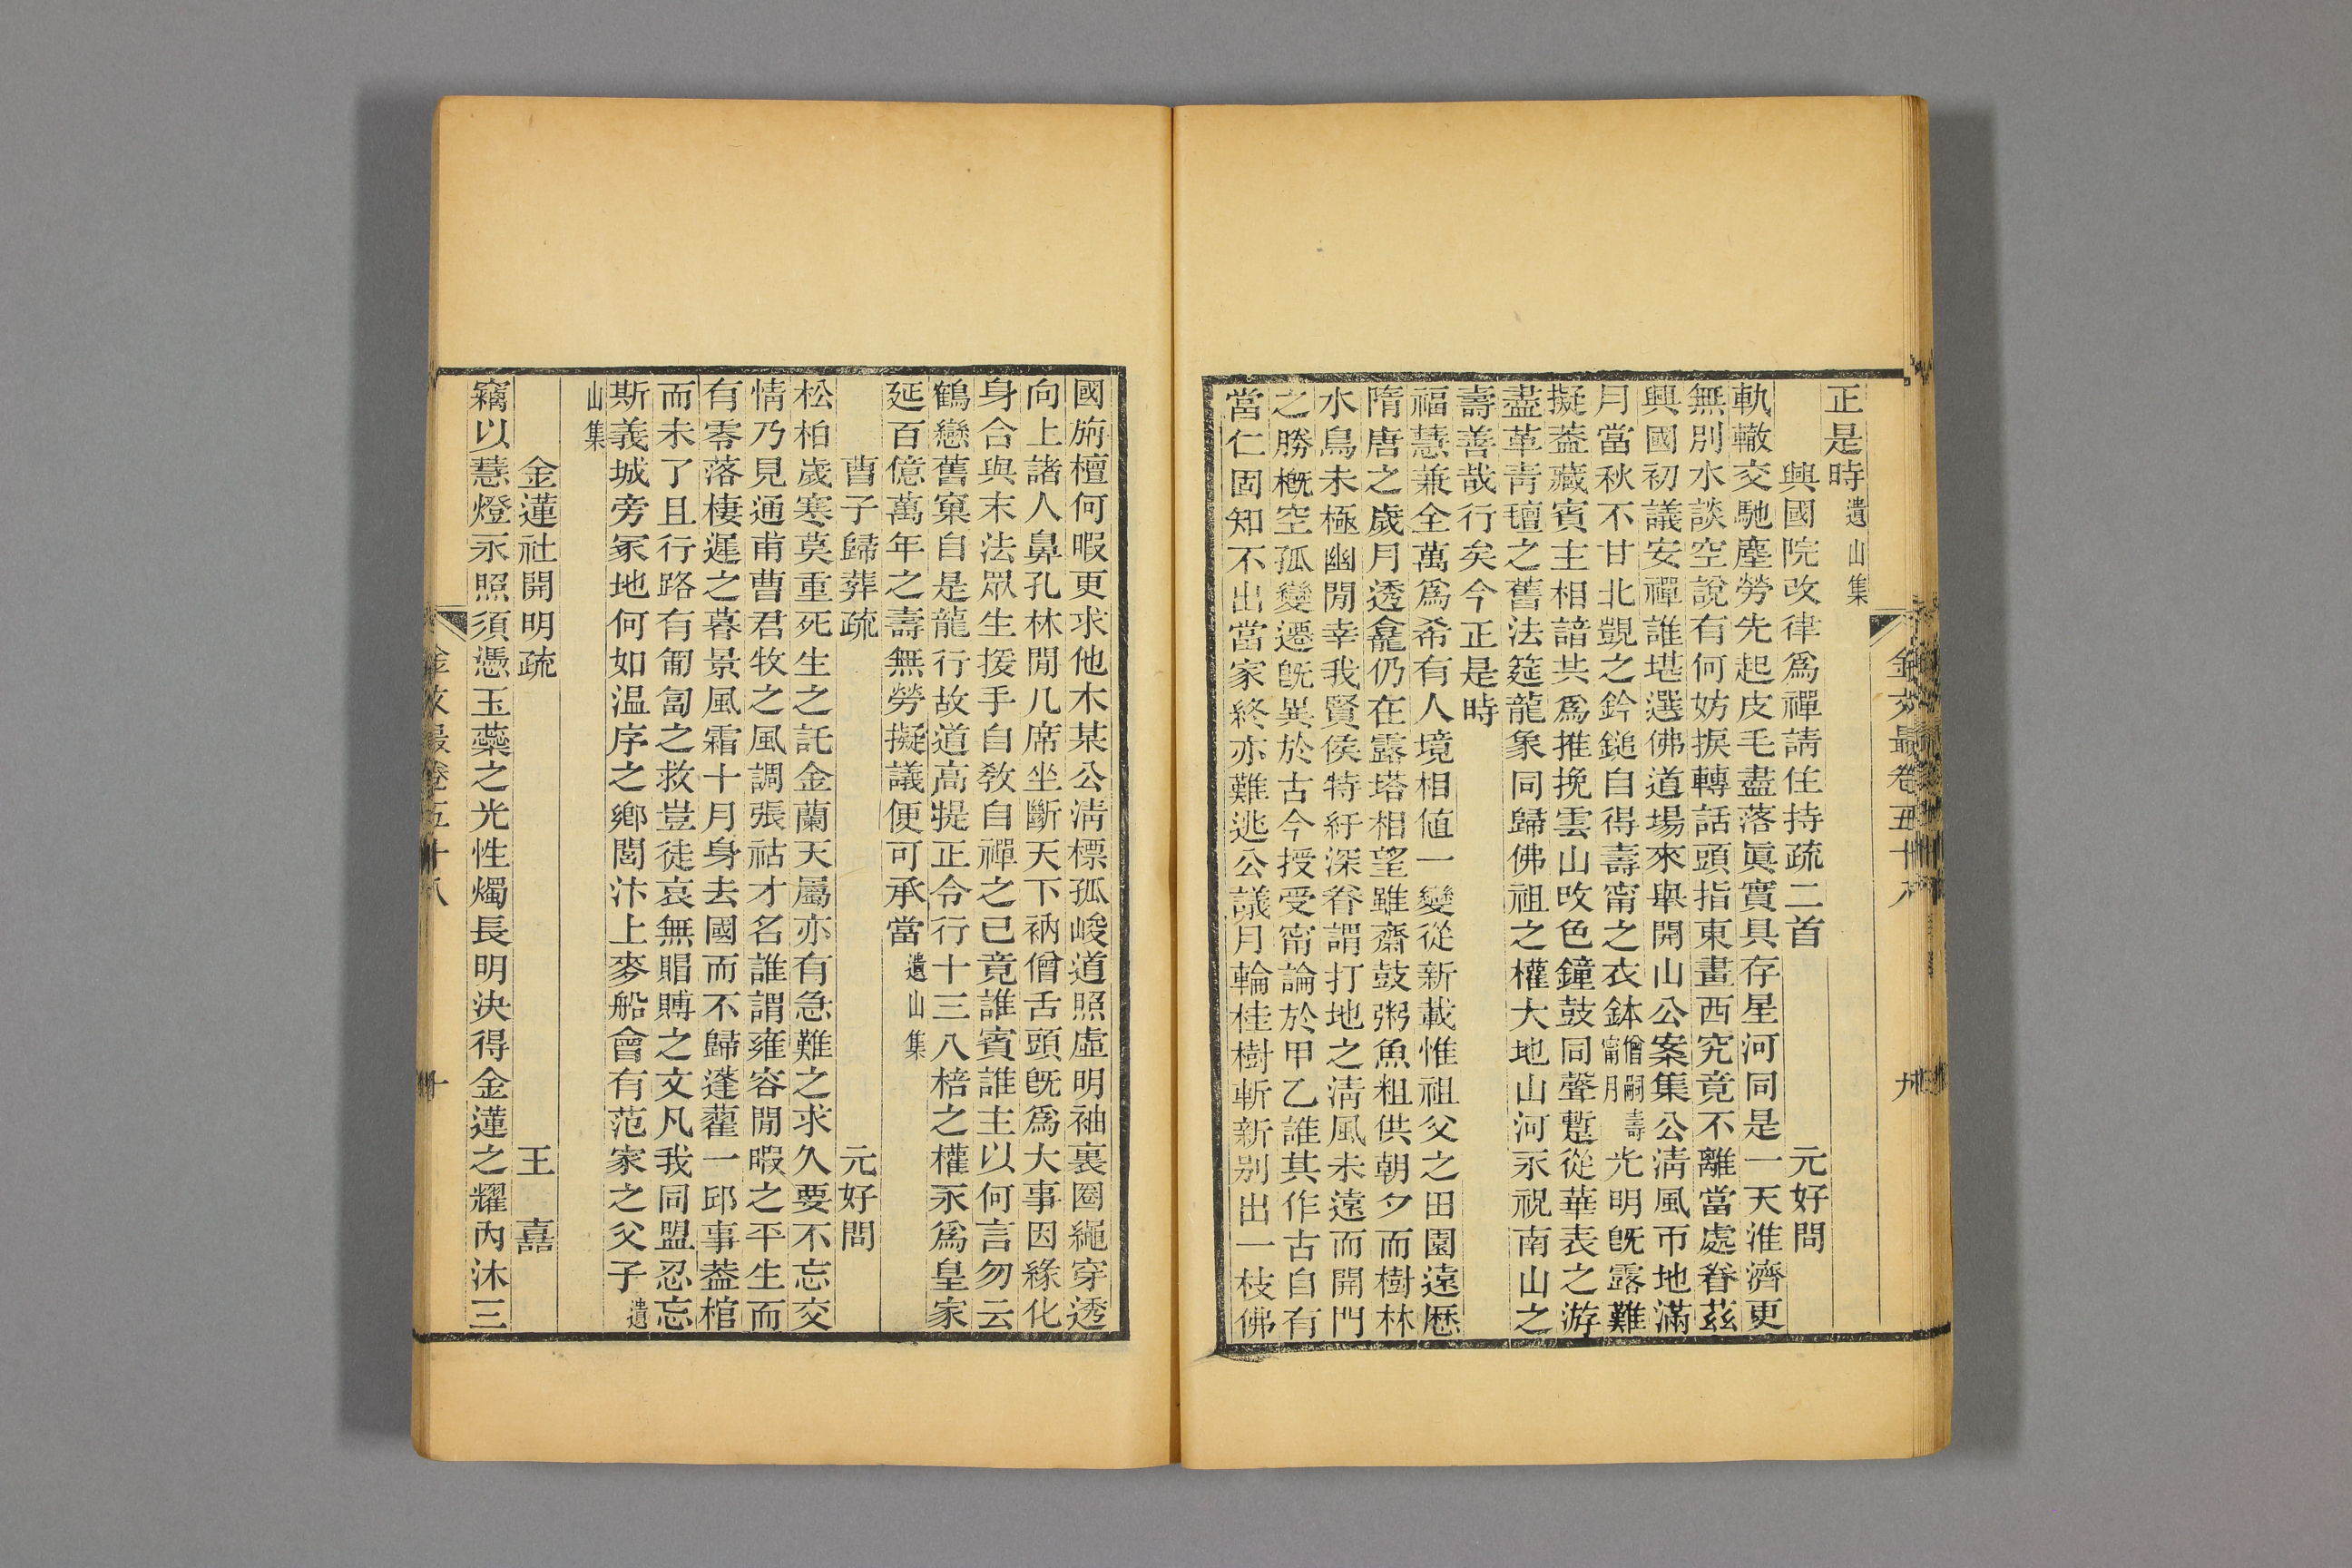 正是時遺山集
興國院改律爲禪請住持疏二首　元好問
軌轍交馳塵勞先起皮毛盡落眞實具存星河同是一天淮濟更
無別水談空說有何妨捩轉話頭指東畫西究竟不離當處眷茲
興國初議安禪誰堪選佛道場來舉開山公案集公淸風帀地滿
月當秋不甘北覬之鈐鎚自得壽甯之衣鉢僧嗣壽甯月光明旣露難
擬葢藏賓主相諳共爲推挽雲山改色鐘鼓同聲蹔從華表之游
盡革靑氊之舊法筵龍象同歸佛祖之權大地山河永祝南山之
壽善哉行矣今正是時
福慧兼全萬爲希有人境相値一變從新載惟祖父之田園遠歷
隋唐之歲月透龕仍在露塔相望雖齋鼓粥魚粗供朝夕而樹林
水鳥未極幽閒幸我賢侯特紆深眷謂打地之淸風未遠而開門
之勝槪空孤變遷旣異於古今授受甯論於甲乙誰其作古自有
當仁固知不出當家終亦難逃公議月輪桂樹斬新别出一枝佛
金文最卷五十八　九
國旃檀何暇更求他木某公淸標孤峻道照虛明袖裏圈繩穿透
向上諸人鼻孔林閒几席坐斷天下衲僧舌頭旣爲大事因緣化
身合與末法眾生援手自敎自禪之已竟誰賓誰主以何言勿云
鶴戀舊窠自是龍行故道高提正令行十三八棓之權永爲皇家
延百億萬年之壽無勞擬議便可承當遺山集
曹子歸葬疏　元好問
松柏歲寒莫重死生之託金蘭天屬亦有急難之求久要不忘交
情乃見通甫曹君牧之風調張祜才名誰謂雍容閒暇之平生而
有零落棲遲之暮景風霜十月身去國而不歸蓬藋一邱事葢棺
而未了且行路有匍匐之救豈徒哀無賵賻之文凡我同盟忍忘
斯義城旁冢地何如温序之鄕閭汴上麥船會有范家之父子遺
山集
金蓮社開明疏　王　嘉
竊以慧燈永照須憑玉蘂之光性燭長明決得金蓮之耀內沐三
金文最卷五十八　十